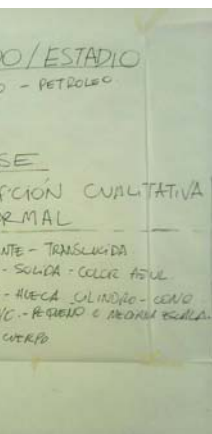 DO/ESTADIO
O - PETROLEO
SE
CIÓN CUALITATIVA
RMAL
NTE - TRANSLUCIDA
- SOLIDA - COLOR AZUL
- HUECA CILINDRO - CONO
/C. - PEQUEÑO O MEDIANA ESCALA.
CUERPO